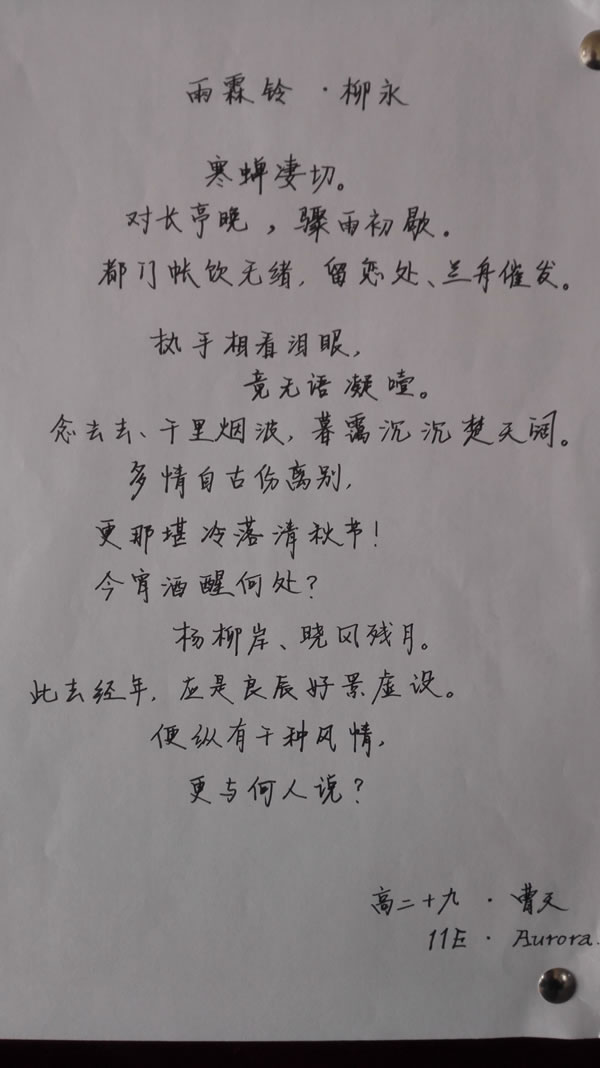 雨霖铃·柳永
寒蝉凄切。
对长亭晚，骤雨初歇。
都门帐饮无绪，留恋处、兰舟催发。
执手相看泪眼，
竟无语凝噎。
念去去、千里烟波，暮霭沉沉楚天阔。
多情自古伤离别，
更那堪冷落清秋节！
今宵酒醒何处？
杨柳岸、晓风残月。
此去经年，应是良辰好景虚设。
便纵有千种风情，
更与何人说？
高二十九·曹天
11E·Aurora.